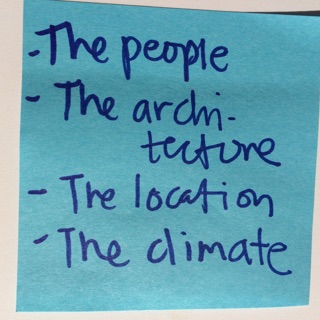 - The people
- The archi-
tecture
- The location
- The climate